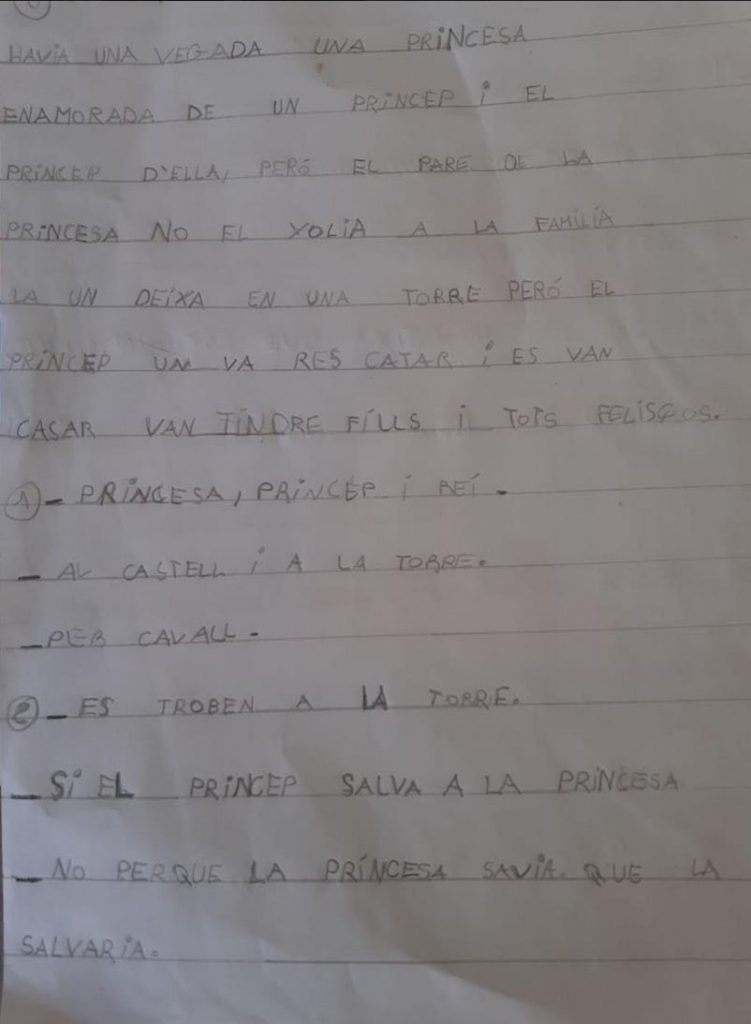 HAVIA UNA VEGADA UNA PRINCESA
ENAMORADA DE UN PRINCEP i EL
PRINCEP D'ELLA, PERÓ EL PARE DE LA
PRINCESA NO EL VOLIA A LA FAMÍLIA
LA UN DEIXA EN UNA TORRE PERÓ EL
PRINCEP UM VA RES CATAR i ES VAN
CASAR VAN TINDRE FILLS i TOTS FELISGOS.
1 - PRINCESA, PRINCEP i REI.
- AL CASTELL i A LA TORRE.
- PER CAVALL.
2 - ES TROBEN A LA TORRE.
- Si EL PRINCEP SALVA A LA PRINCESA
- NO PERQUE LA PRINCESA SAVIA. QUE LA
SALVARIA.